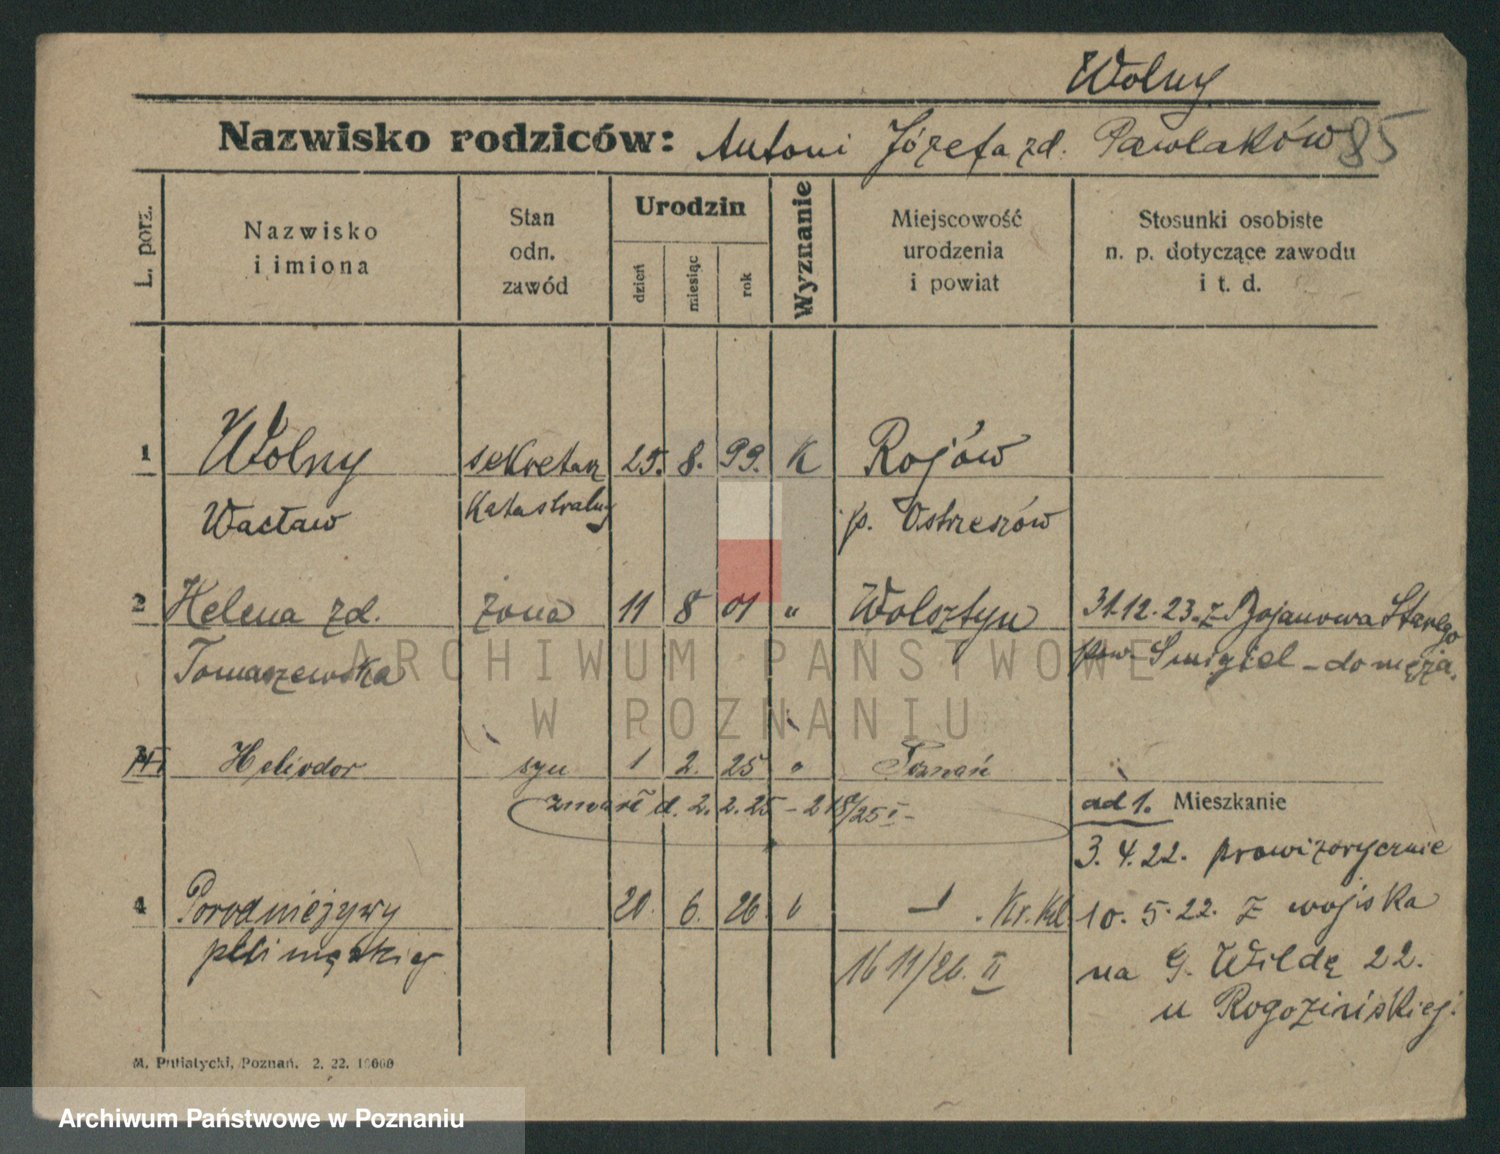 Wolny
Nazwisko rodziców: Antoni Józefa zd. Pawlaków 85
L. porz.
Nazwisko i imiona
Stan odn. zawód
Urodzin
dzień
miesiąc
rok
Wyznanie
Miejscowość urodzenia i powiat
Stosunki osobiste n. p. dotyczące zawodu i t. d.
1 Wolny sekretarz 25. 8. 99. K Rojów
Wacław katastralny p. Ostrzeszów
2 Helena zd. żona 11 8 01 " Wolsztyn 31.12.23. z Bojanowa Starego
Tomaszewska pow. Śmigiel - do męża.
Heliodor syn 1 2. 25 " Poznań
zmarł d. 2. 2. 25 - 218/25 I -
ad 1. Mieszkanie
3. 4. 22. prowizorycznie
4 Porod nieżywy 20. 6. 26 Kr. Kl. 10. 5. 22. z wojska
płci męskiej 16 11/26. II na G. Wildę 22.
u Rogozińskiej.
M. Putiatycki, Poznań. 2. 22. 10000
ARCHIWUM PAŃSTWOWE
W POZNANIU
Archiwum Państwowe w Poznaniu